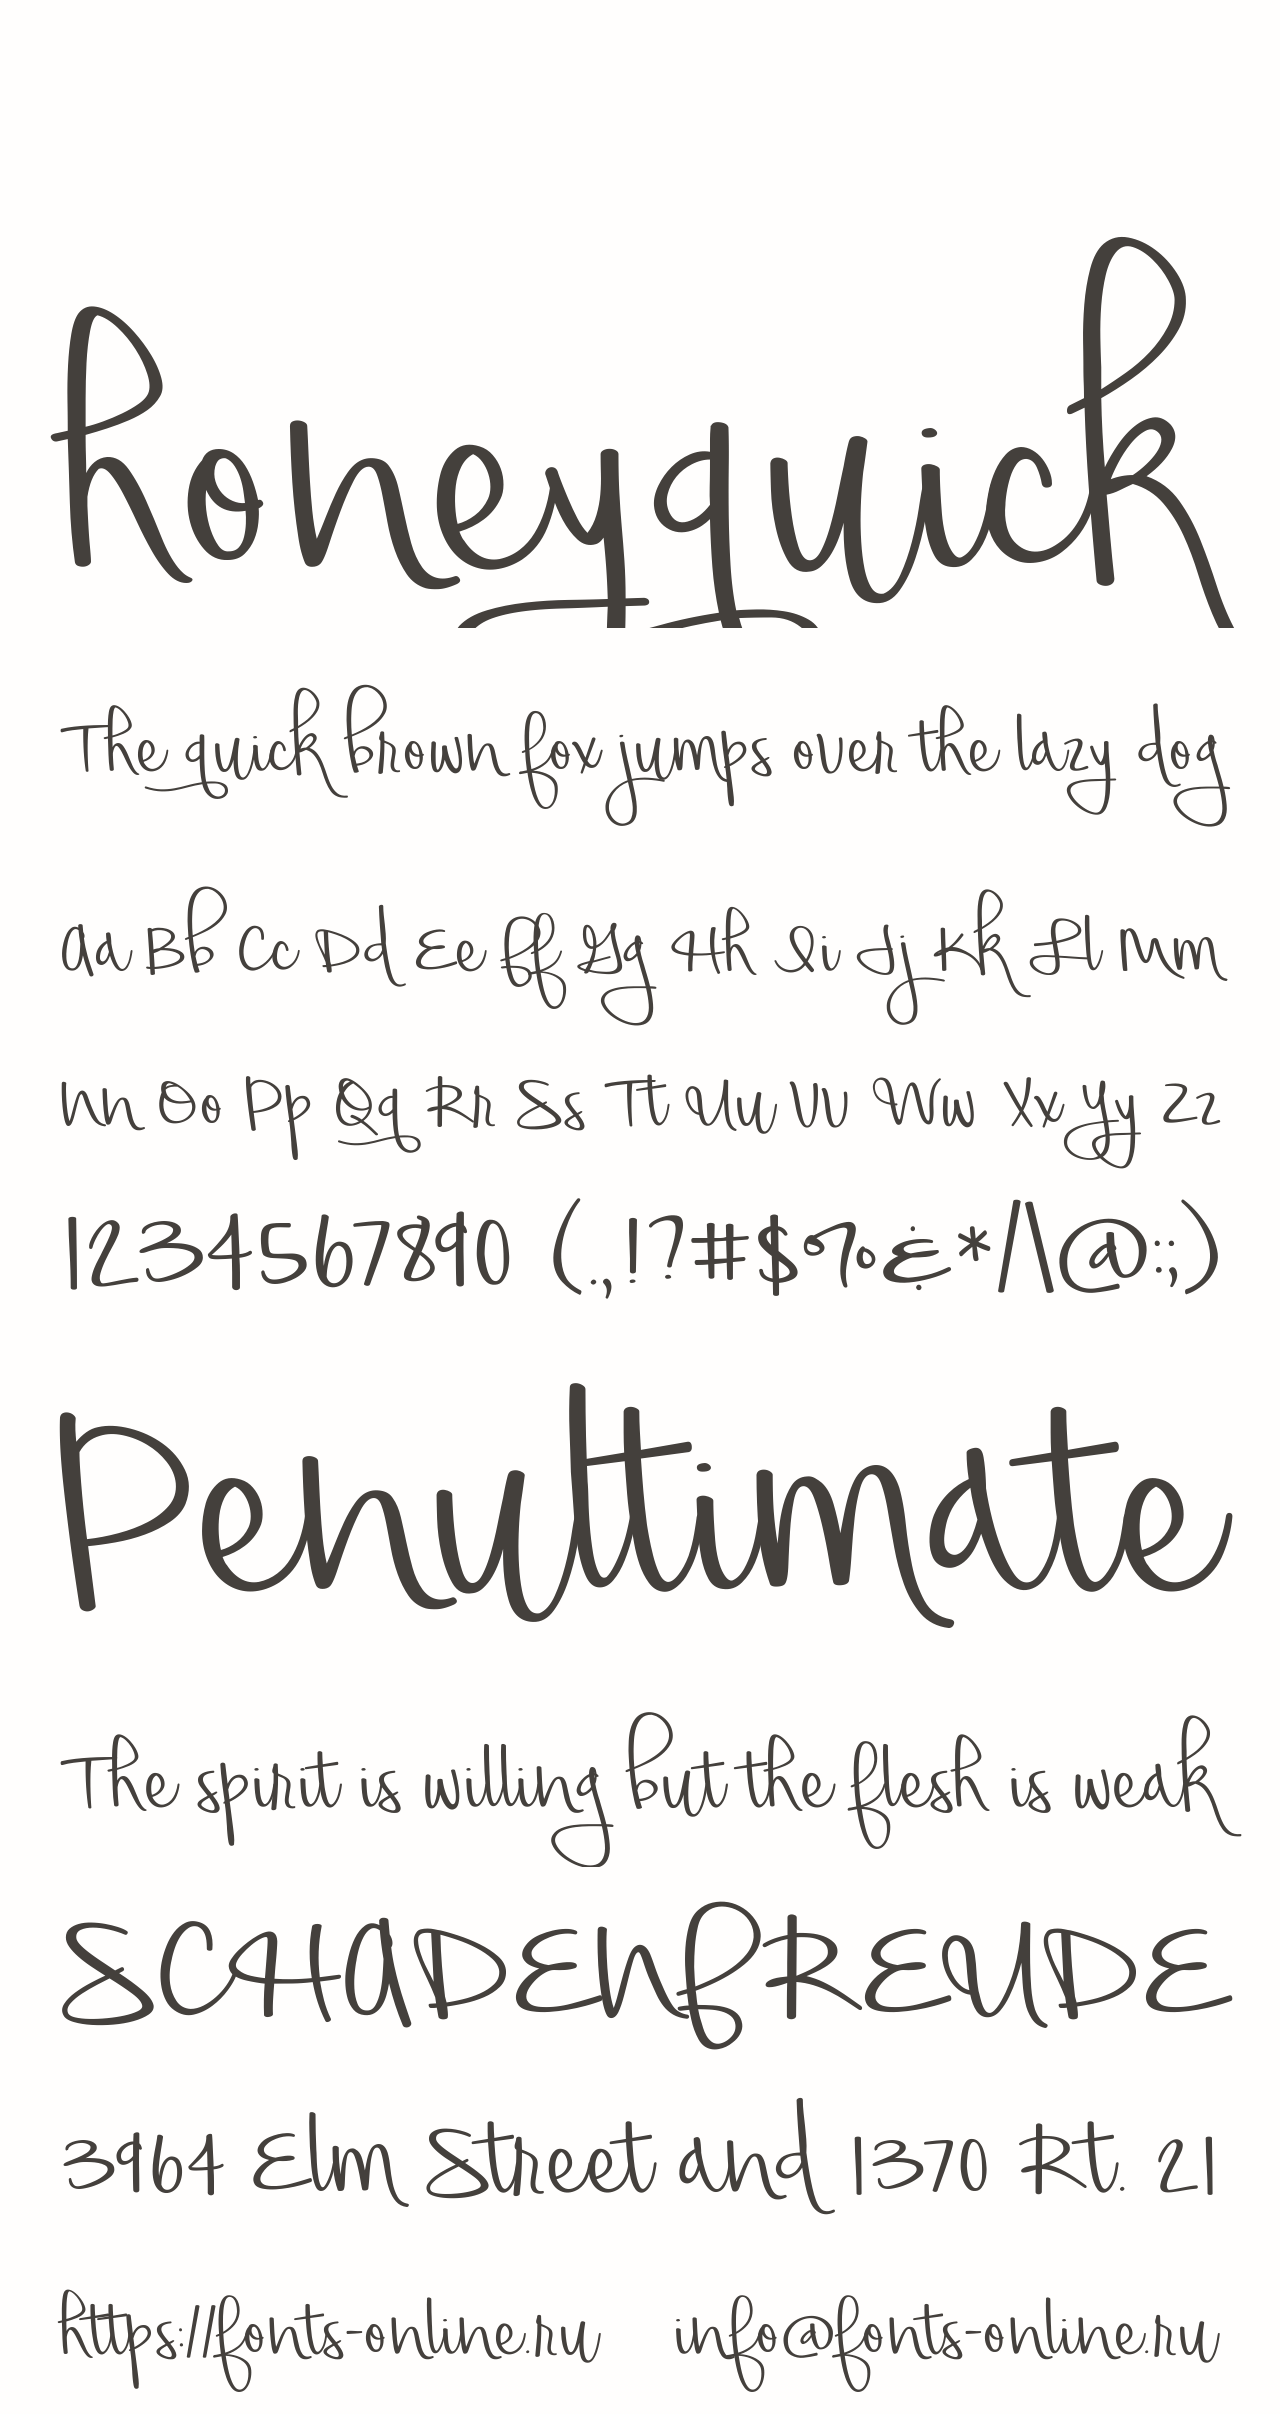 honeyquick
The quick brown fox jumps over the lazy dog
Aa Bb Cc Dd Ee Ff Gg Hh Ii Jj Kk Ll Mm
Nn Oo Pp Qq Rr Ss Tt Uu Vv Ww Xx Yy Zz
1234567890 (.,!?#$%&*/\@:;)
Penultimate
The spirit is willing but the flesh is weak
SCHADENFREUDE
3964 Elm Street and 1370 Rt. 21
https://fonts-online.ru info@fonts-online.ru